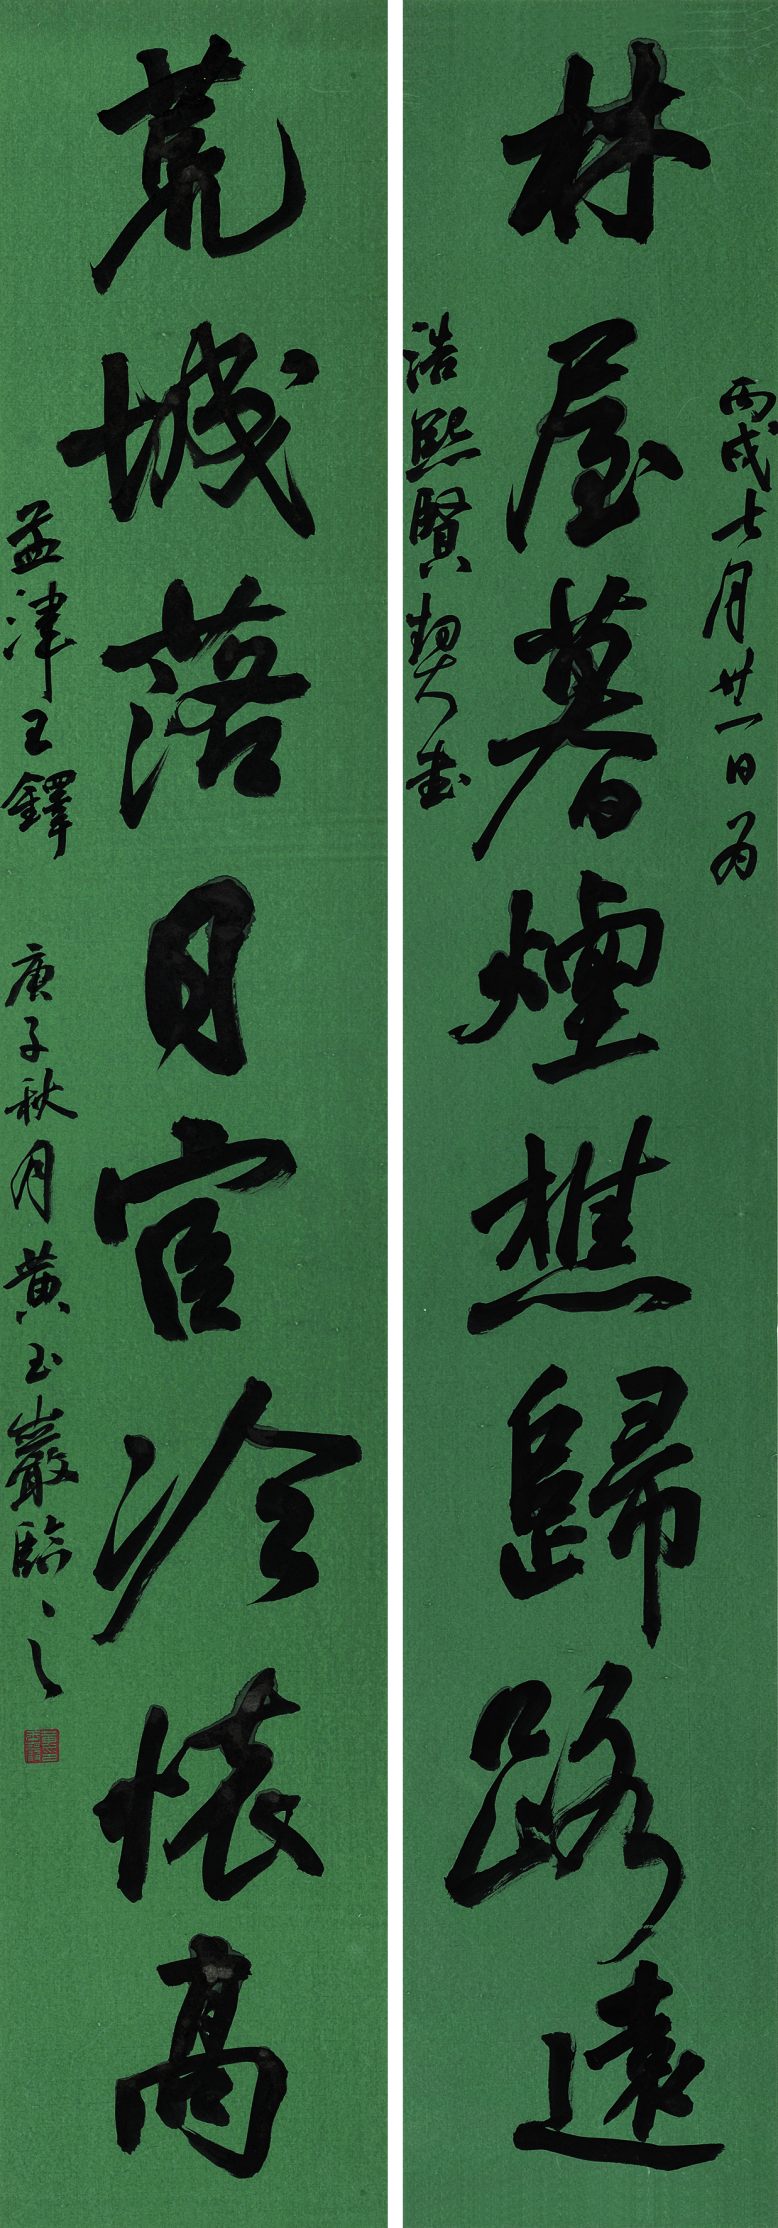 林屋暮煙樵歸路遠
丙戌七月廿一日为
浩熙賢契书
荒城落日官冷懷高
孟津王鐸
庚子秋月黄玉巖臨之